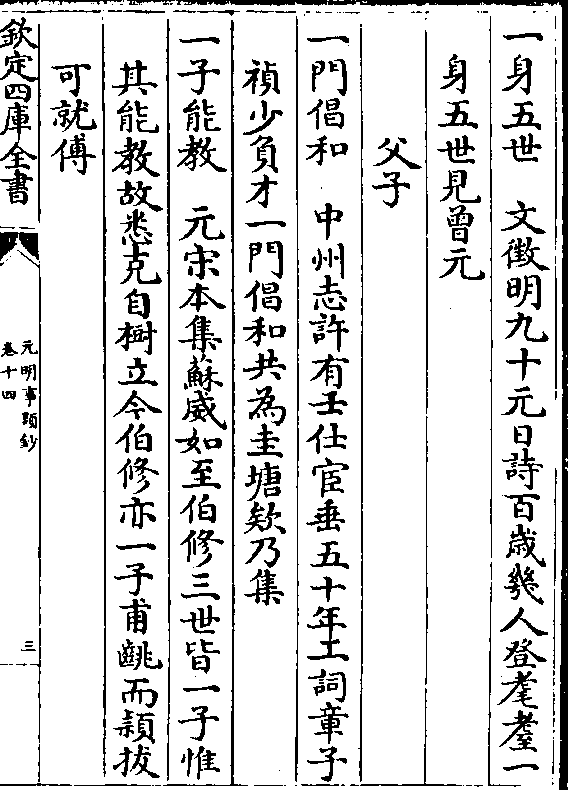 一身五世　文徵明九十元日詩百歲幾人登耄耋一
身五世見曾元
父子
一門倡和　中州志許有壬仕宦垂五十年工詞章子
禎少負才一門倡和共為圭塘欸乃集
一子能教　元宋本集蘇威如至伯修三世皆一子惟
其能教故悉克自樹立今伯修亦一子甫齠而穎拔
可就傅
欽定四庫全書
元明事類鈔
卷十四
三